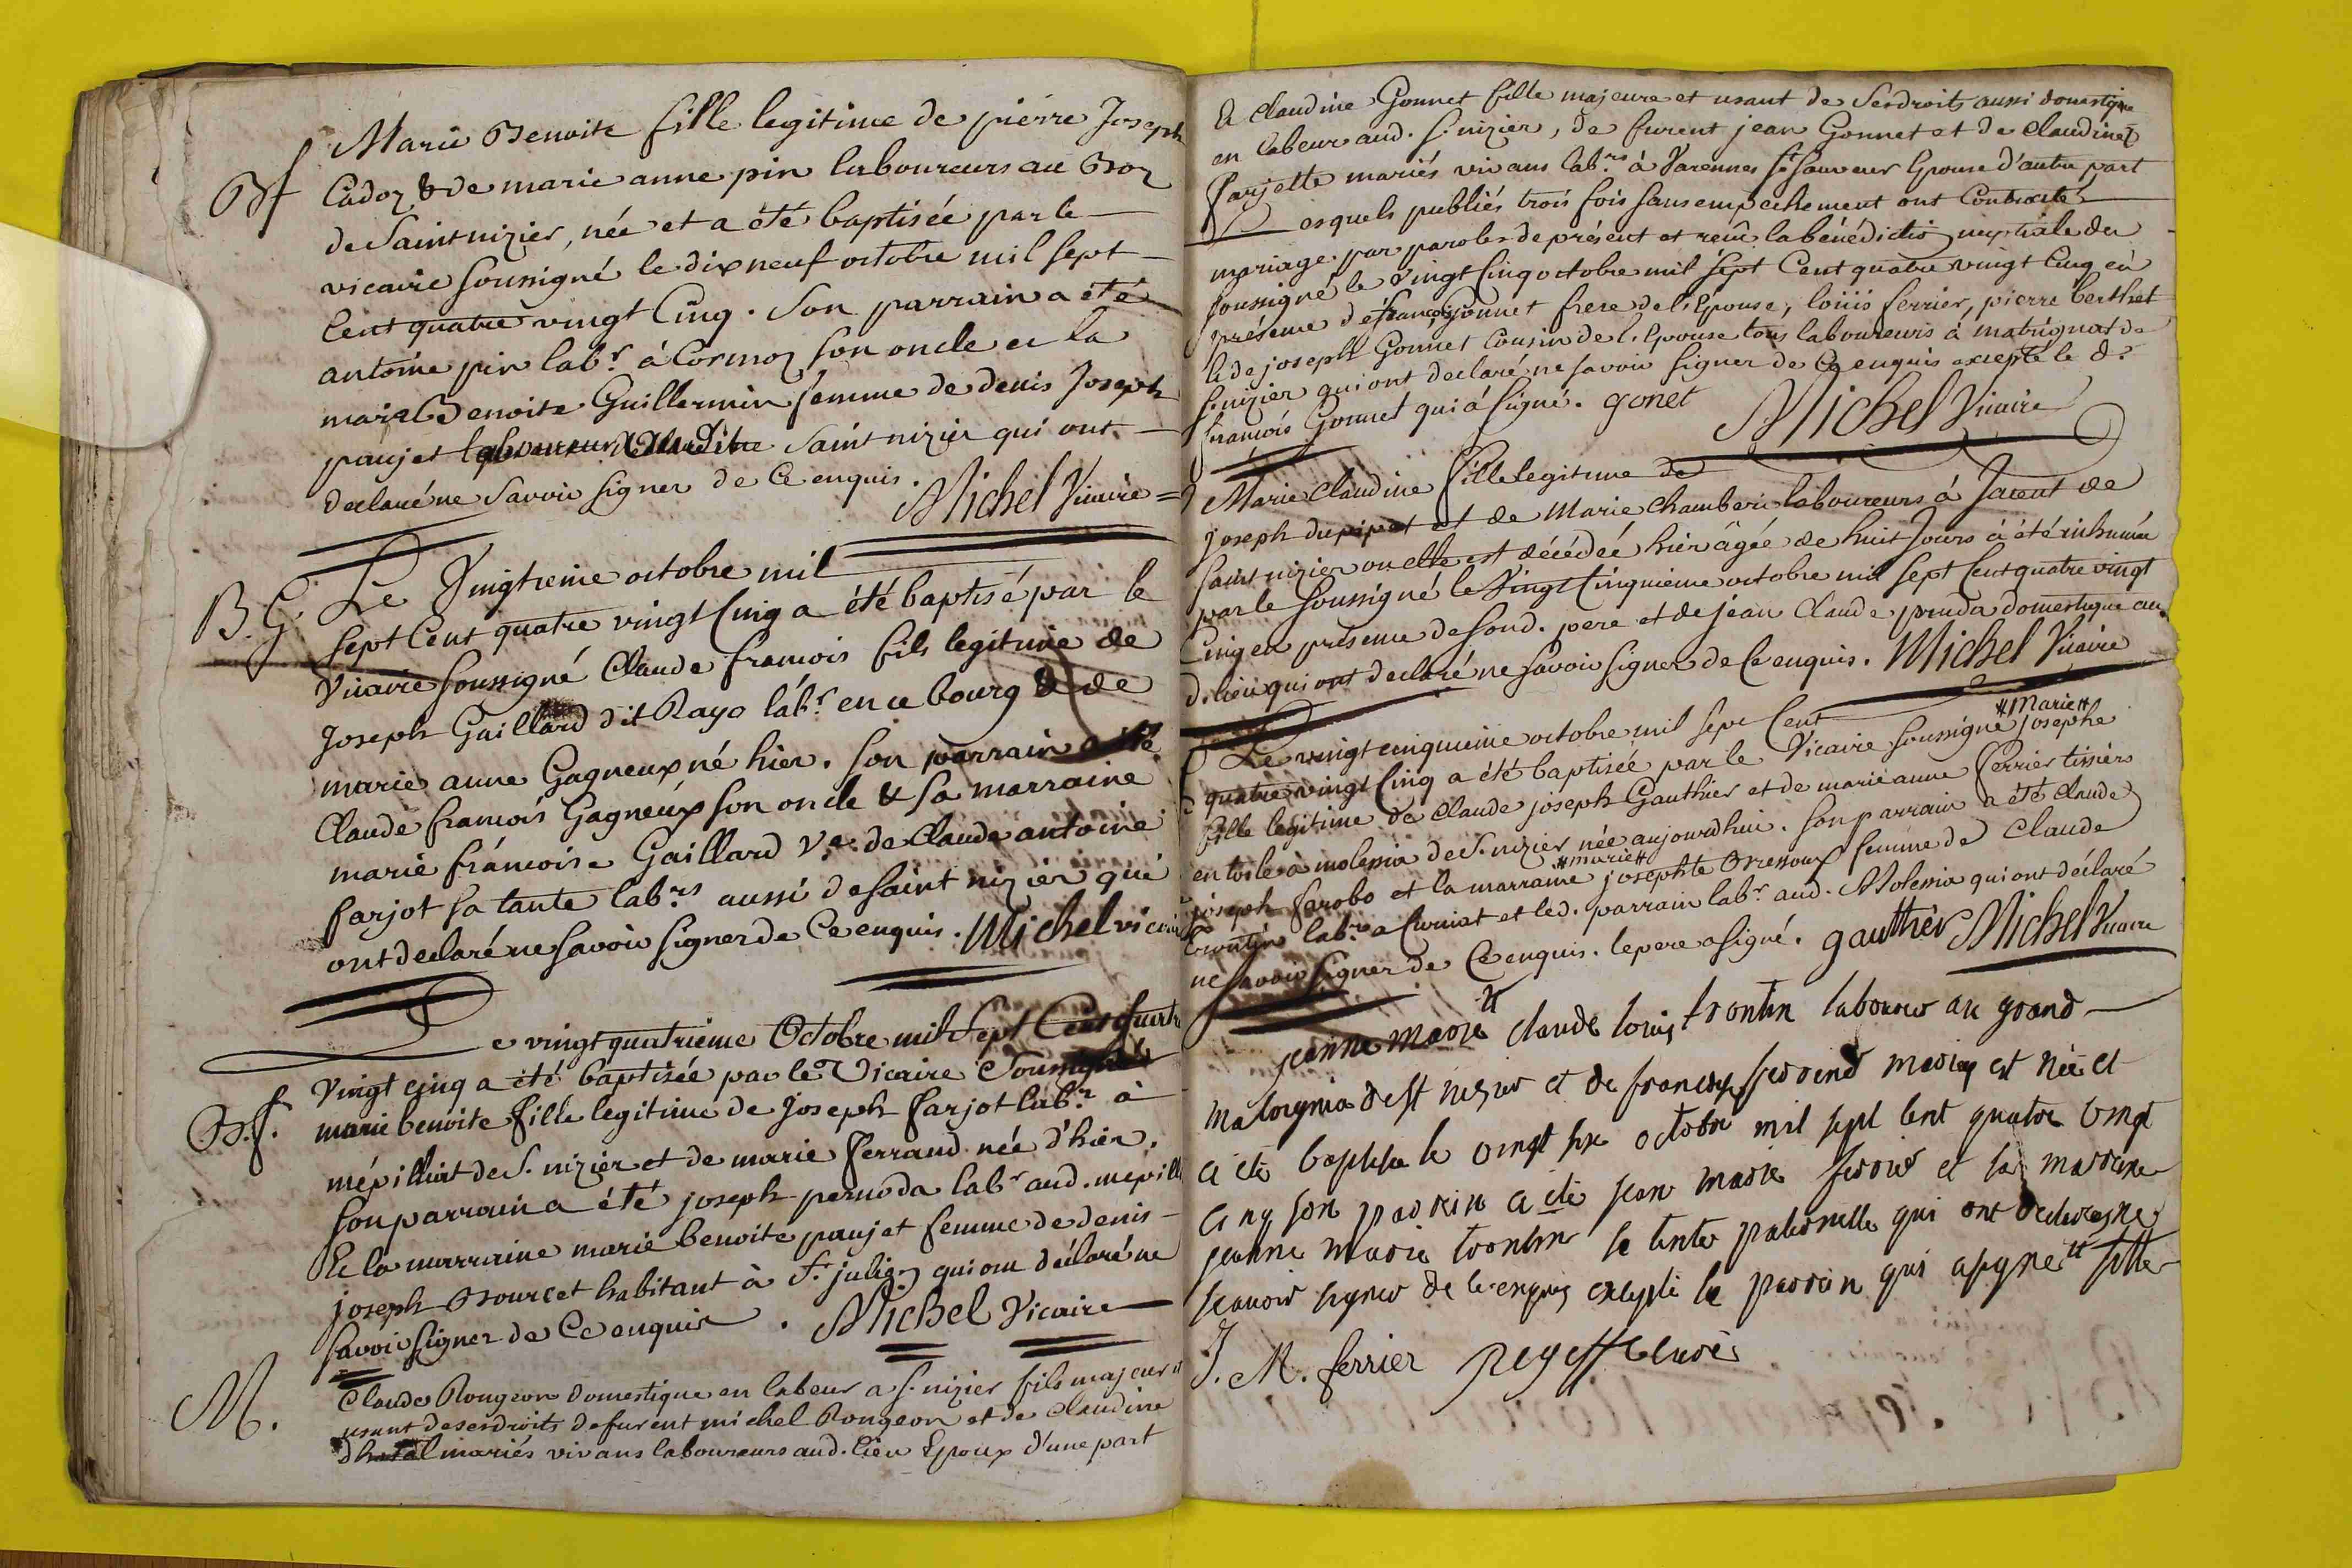 Marie Benoite fille legitime de pierre Joseph
Bf Cadoz & de marie anne pin laboureurs au Boz
de Saint nizier, née et a été baptisée par le
vicaire soussigné le dix neuf octobre mil sept
Cent quatre vingt Cinq. Son parrain a été
antoine pin lab.r à Cormoz son oncle et la
mare Benoite Guillermin femme de denis Joseph
paujet laboureur Saint nizier qui ont
declaré ne Savoir signer de Ce enquis.
Michel Vicaire =
B. G. Le Vingtieme octobre mil
sept Cent quatre vingt Cinq a été baptisé par le
Vicaire soussigné Claude francois fils legitime de
Joseph Gaillard dit Rayo lab.r en ce bourg & de
marie anne Gagneux né hier. Son parrain a été
Claude francois Gagneux son oncle & sa marraine
marie francoise Gaillard V.e de Claude antoine
farjot sa tante lab.rs aussi de saint nizier qui
ont declaré ne savoir signer de Ce enquis. Michel vicaire
Le vingt quatrieme Octobre mil Sept Cent quatre
Vingt cinq a été baptisée par le Vicaire Soussigné
B.f. marie benoite fille legitime de Joseph farjot lab.r à
mépillat de S. nizier et de marie ferrand née d'hier.
Son parrain a été joseph pernoda lab.r aud. mepill
Et la marraine marie benoite paujet femme de denis
joseph Bourcet habitant à S.t julien qui ont déclaré ne
savoir signer de Ce enquis. Michel Vicaire
M. Claude Rougeon domestique en labeur a S. nizier fils majeur
usant de ses droits de furent michel Rongeon et de Claudine
mariés vivans laboureurs aud. lieu Epoux d'une part
Et claudine Gonnet fille majeure et usant de Ses droits aussi domestique
en labeur aud. S. nizier, de furent jean Gonnet et de claudine
farjette mariés vivans lab.rs à Varennes S.t Sauveur Epouse d'autre part
Lesquels publiés trois fois sans empechement ont Contracté
mariage par paroles de présent et recu la bénédiction nuptiale du
soussigné le vingt Cinq octobre mil sept Cent quatre vingt Cinq en
présence de francois Gonnet frere de l'Epouse, loüis ferrier, pierre berthet
& de joseph Gonnet Cousin de l'Epouse tous laboureurs à matrignat de
S. nizier qui ont declaré ne savoir signer de Ce enquis excepté le d.
francois Gonnet qui a signé. gonet Michel Vicaire
Marie Claudine fille legitime de
joseph dupipat et de Marie Chamberi laboureurs à Jarent de
saint nizier ou elle est décédée hier âgée de huit Jours à été inhumée
par le Soussigné le Vingt Cinquieme octobre mil sept Cent quatre vingt
Cinq en présence de sond. pere et de jean Claude domestique au
d. lieu qui ont declaré ne savoir signer de Ce enquis. Michel Vicaire
Le vingt cinquieme octobre mil sept Cent
quatre vingt Cinq a été baptisée par le Vicaire soussigné #Marie# josephe
fille legitime de Claude joseph Gauthier et de marie anne ferrier tissiers
en toile à molessia de S. nizier née aujourdhui. Son parrain a été claude
joseph farobo et la marraine #marie# josephte Bressoux femme de Claude
trontin lab.rs a Curciat et led. parrain lab.r aud. Molessia qui ont déclaré
ne savoir signer de Ce enquis. le pere a signé. gauthier Michel Vicaire
jeanne marie # claude louis trontin laboureur au grand
de st nizier et de francoise mariés est née et
a été baptisée le vingt six octobre mil sept cent quatre vingt
cinq son parrain a été jean marie ferrier et sa marraine
jeanne marie trontin sa tante paternelle qui ont declaré ne
scavoir signer de ce enquis excepté le parrain qui a signé # fille
J. M. ferrier